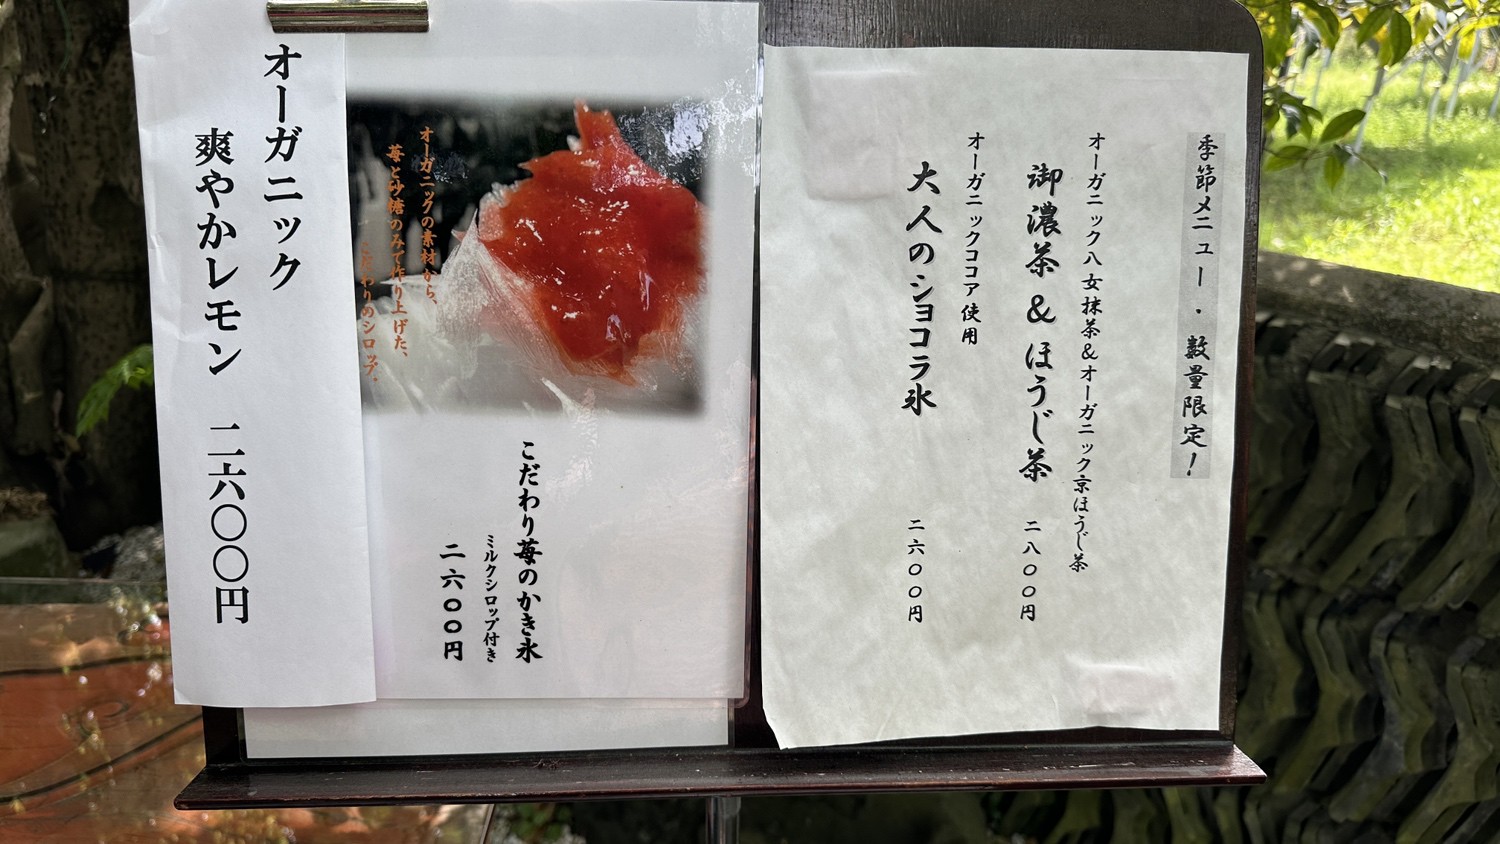 季節メニュー・数量限定!
オーガニック八女抹茶&オーガニック京ほうじ茶
御濃茶&ほうじ茶 二八〇〇円
オーガニックココア使用
大人のショコラ氷 二六〇〇円
オーガニックの素材から、
苺と砂糖のみで作り上げた、
こだわりのシロップ。
こだわり苺のかき氷
ミルクシロップ付き
二六〇〇円
オーガニック
爽やかレモン 二六〇〇円